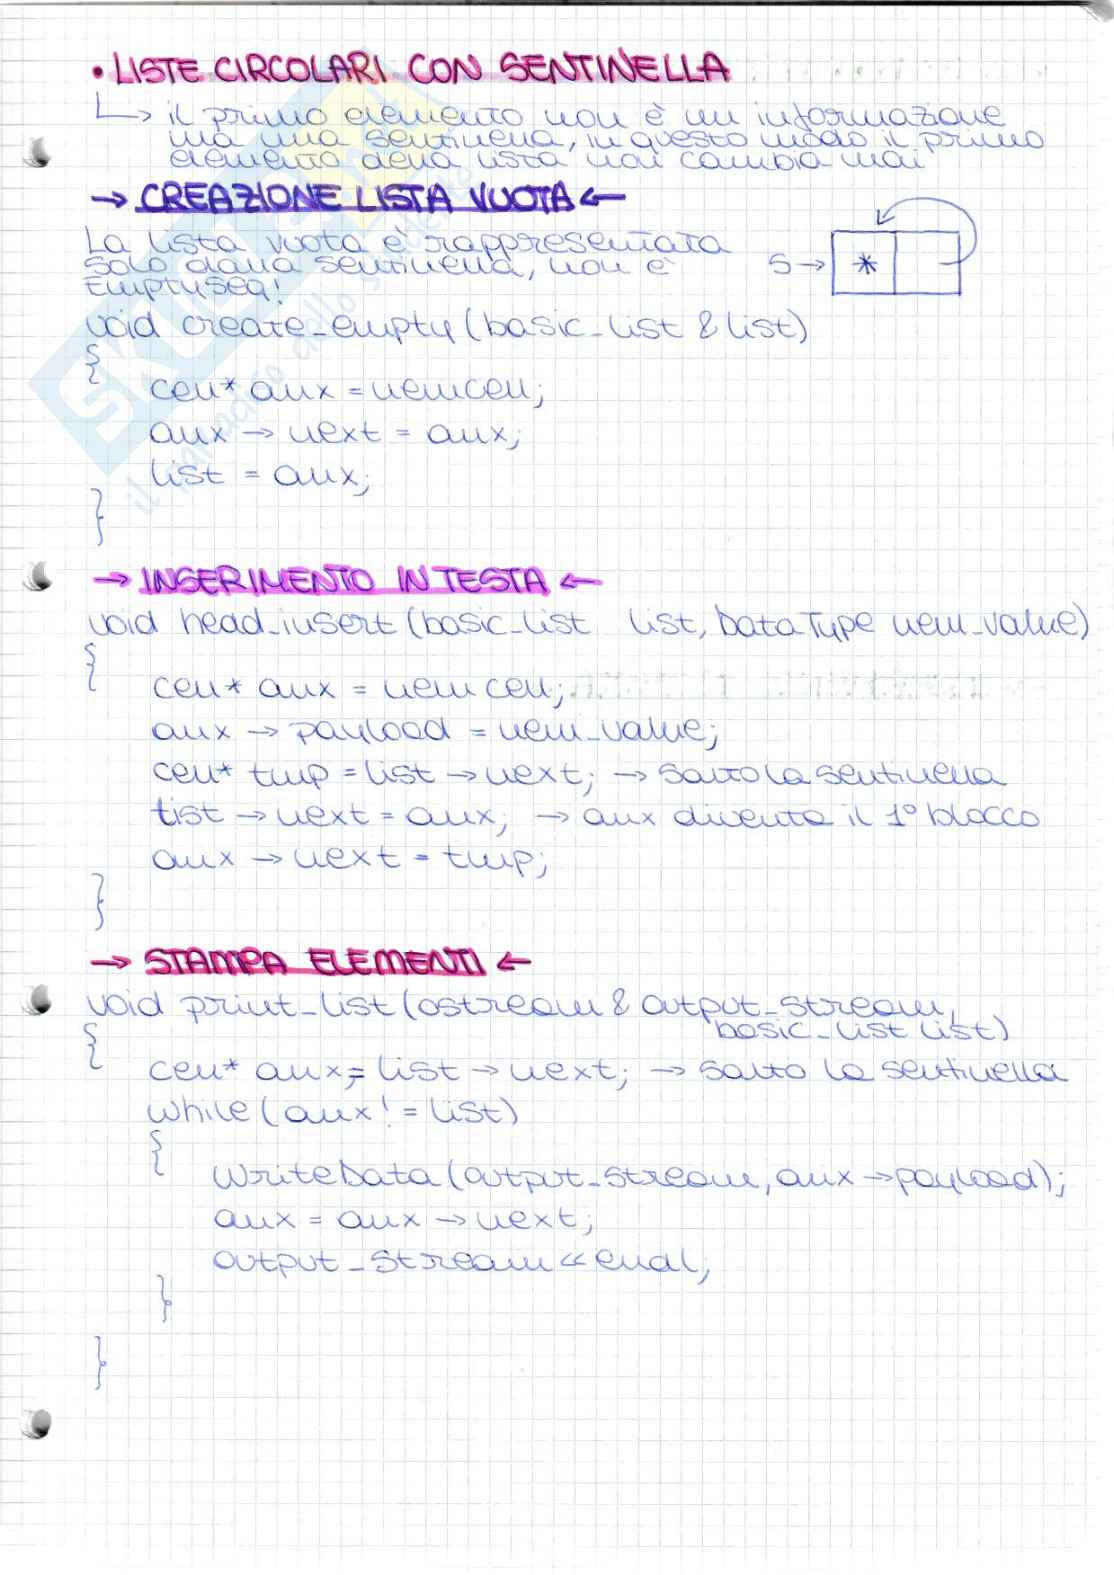 • LISTE CIRCOLARI CON SENTINELLA
↳ il primo elemento non è un informazione
ma una sentinella, in questo modo il primo
elemento della lista non cambia mai
→ CREAZIONE LISTA VUOTA ←
La lista vuota è rappresentata
solo dalla sentinella, non è
EmptySeq!
S → *
void create_empty (basic_list & list)
{
cell* aux = new cell;
aux → next = aux;
list = aux;
}
→ INSERIMENTO IN TESTA ←
void head_insert (basic_list list, DataType new_value)
{
cell* aux = new cell;
aux → payload = new_value;
cell* tmp = list → next; → salto la sentinella
list → next = aux; → aux diventa il 1° blocco
aux → next = tmp;
}
→ STAMPA ELEMENTI ←
void print_list (ostream & output_stream,
basic_list list)
{
cell* aux = list → next; → salto la sentinella
while (aux != list)
{
WriteData (output_stream, aux → payload);
aux = aux → next;
output_stream << endl;
}
}